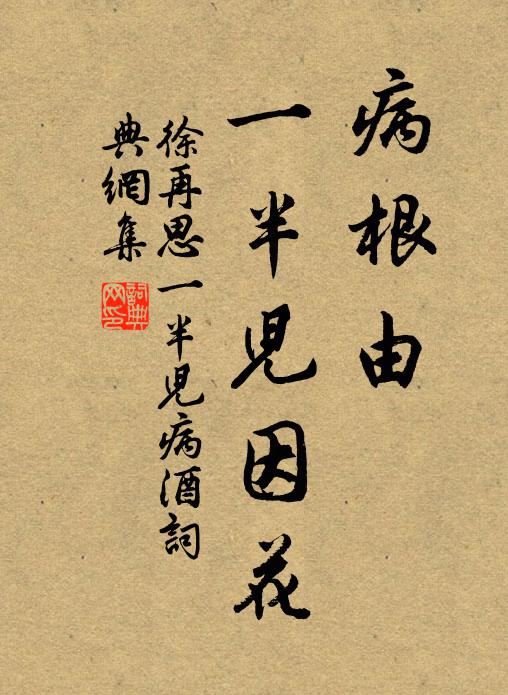 病根由
一半兒因花
徐再思一半兒病酒詞
典網集
詞典网印